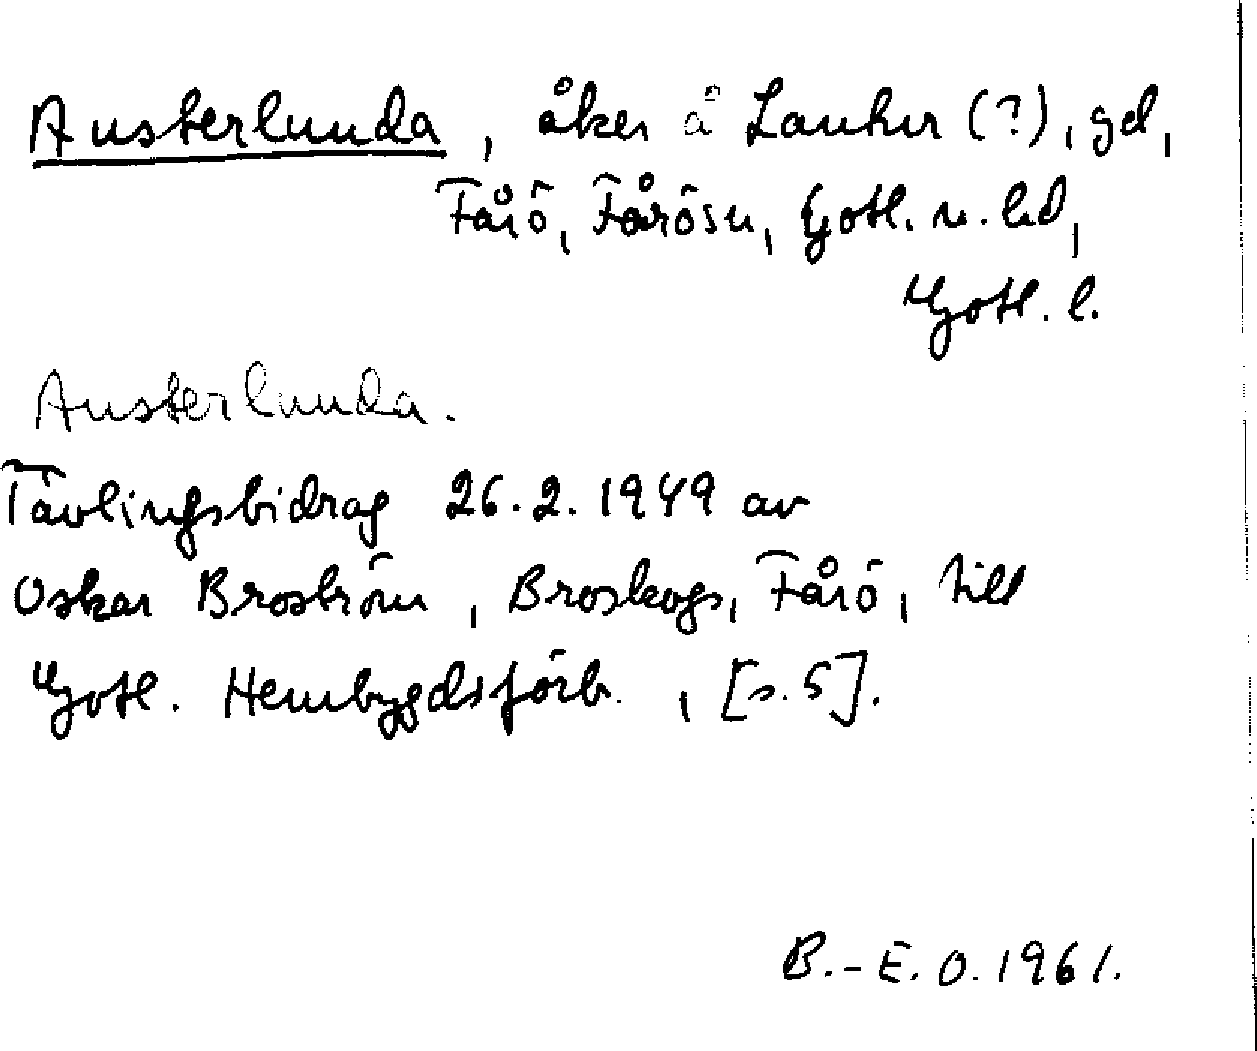 Austerlunda, åker å Lauhur (?), gd,
Fårö, Fårösu, Gotl. n. hd,
Gotl. l.
Austerlunda.
Tävlingsbidrag 26.2.1949 av
Oskar Broström, Broskogs, Fårö, till
Gotl. Hembygdsförb., [s. 5].
B.-E.O. 1961.